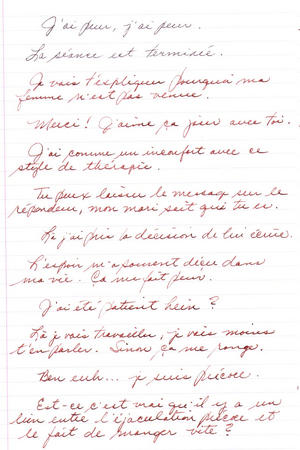 J'ai peur, j'ai peur.
La séance est terminée.
Je vais t'expliquer pourquoi ma
femme n'est pas venue.
Merci! J'aime ça jouer avec toi.
J'ai comme un inconfort avec ce
style de thérapie.
Tu peux laisser le message sur le
répondeur, mon mari sait qui tu es.
Là j'ai pris la décision de lui écrire.
L'espoir m'a souvent déçu dans
ma vie. Ça me fait peur.
J'ai été patient hein?
Là je vais travailler, je vais moins
t'en parler. Sinon ça me ronge.
Ben euh... je suis précoce.
Est-ce c'est vrai qu'il y a un
lien entre l'éjaculation précoce et
le fait de manger vite?